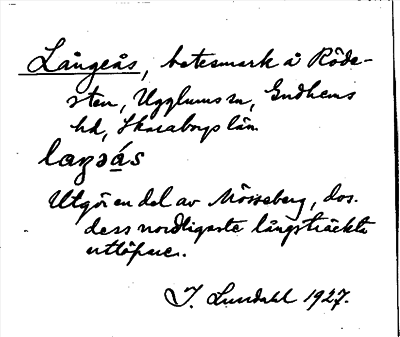 Långeås, betesmark å Röde-
sten, Ugglums sn, Gudhems
hd, Skaraborgs län.
laŋəás
Utgör en del av Mösseberg, dos.
dess nordligaste långsträckta
utlöpare.
J. Lundahl 1927.